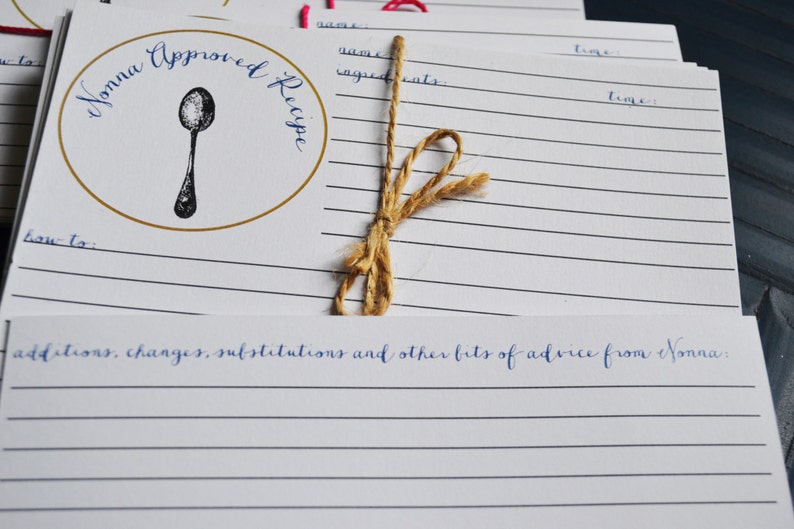 name:
time:
how-to:
Nonna Approved Recipe
name:
ingredients:
time:
how-to:
additions, changes, substitutions and other bits of advice from Nonna: